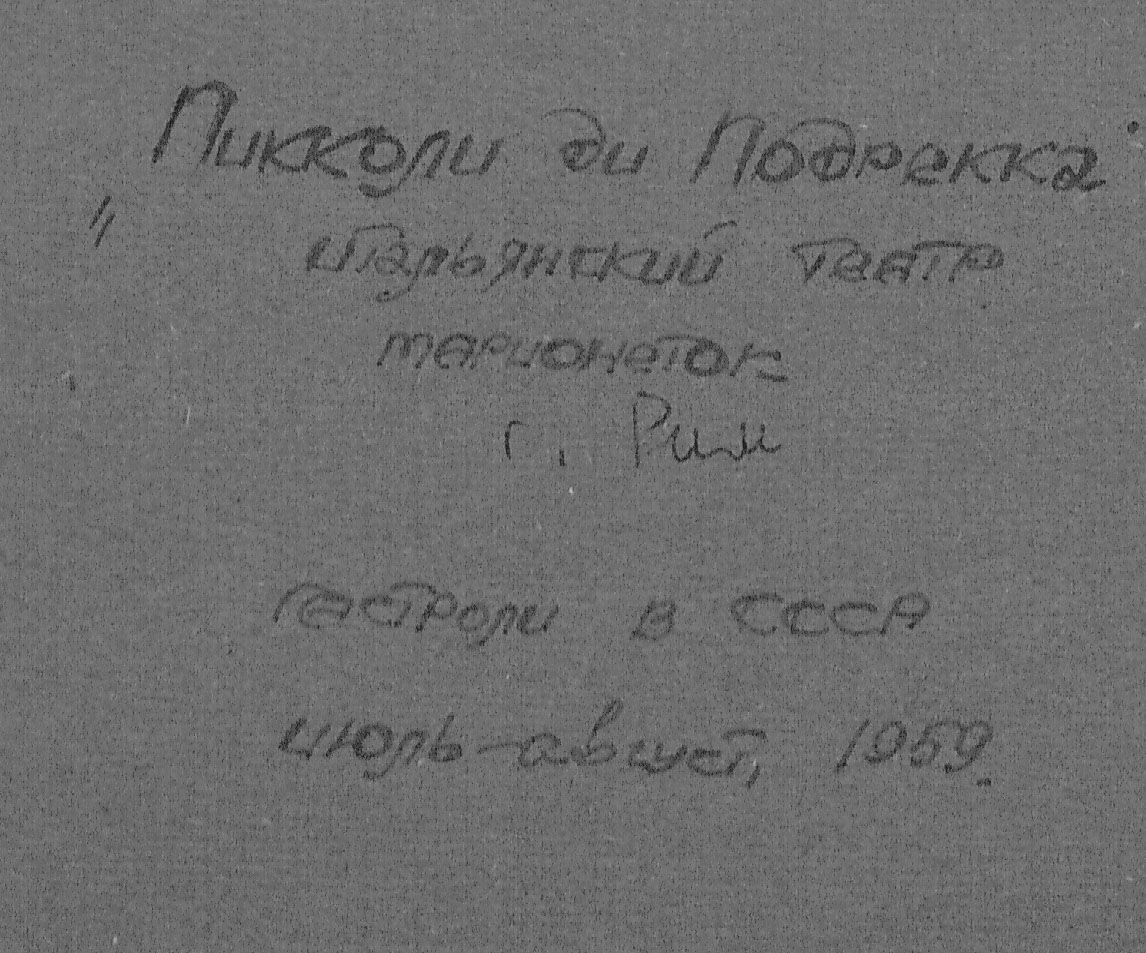 "Пикколи ди Подрекка
итальянский театр
марионеток
г. Рим
Гастроли в СССР
июль-август, 1959.